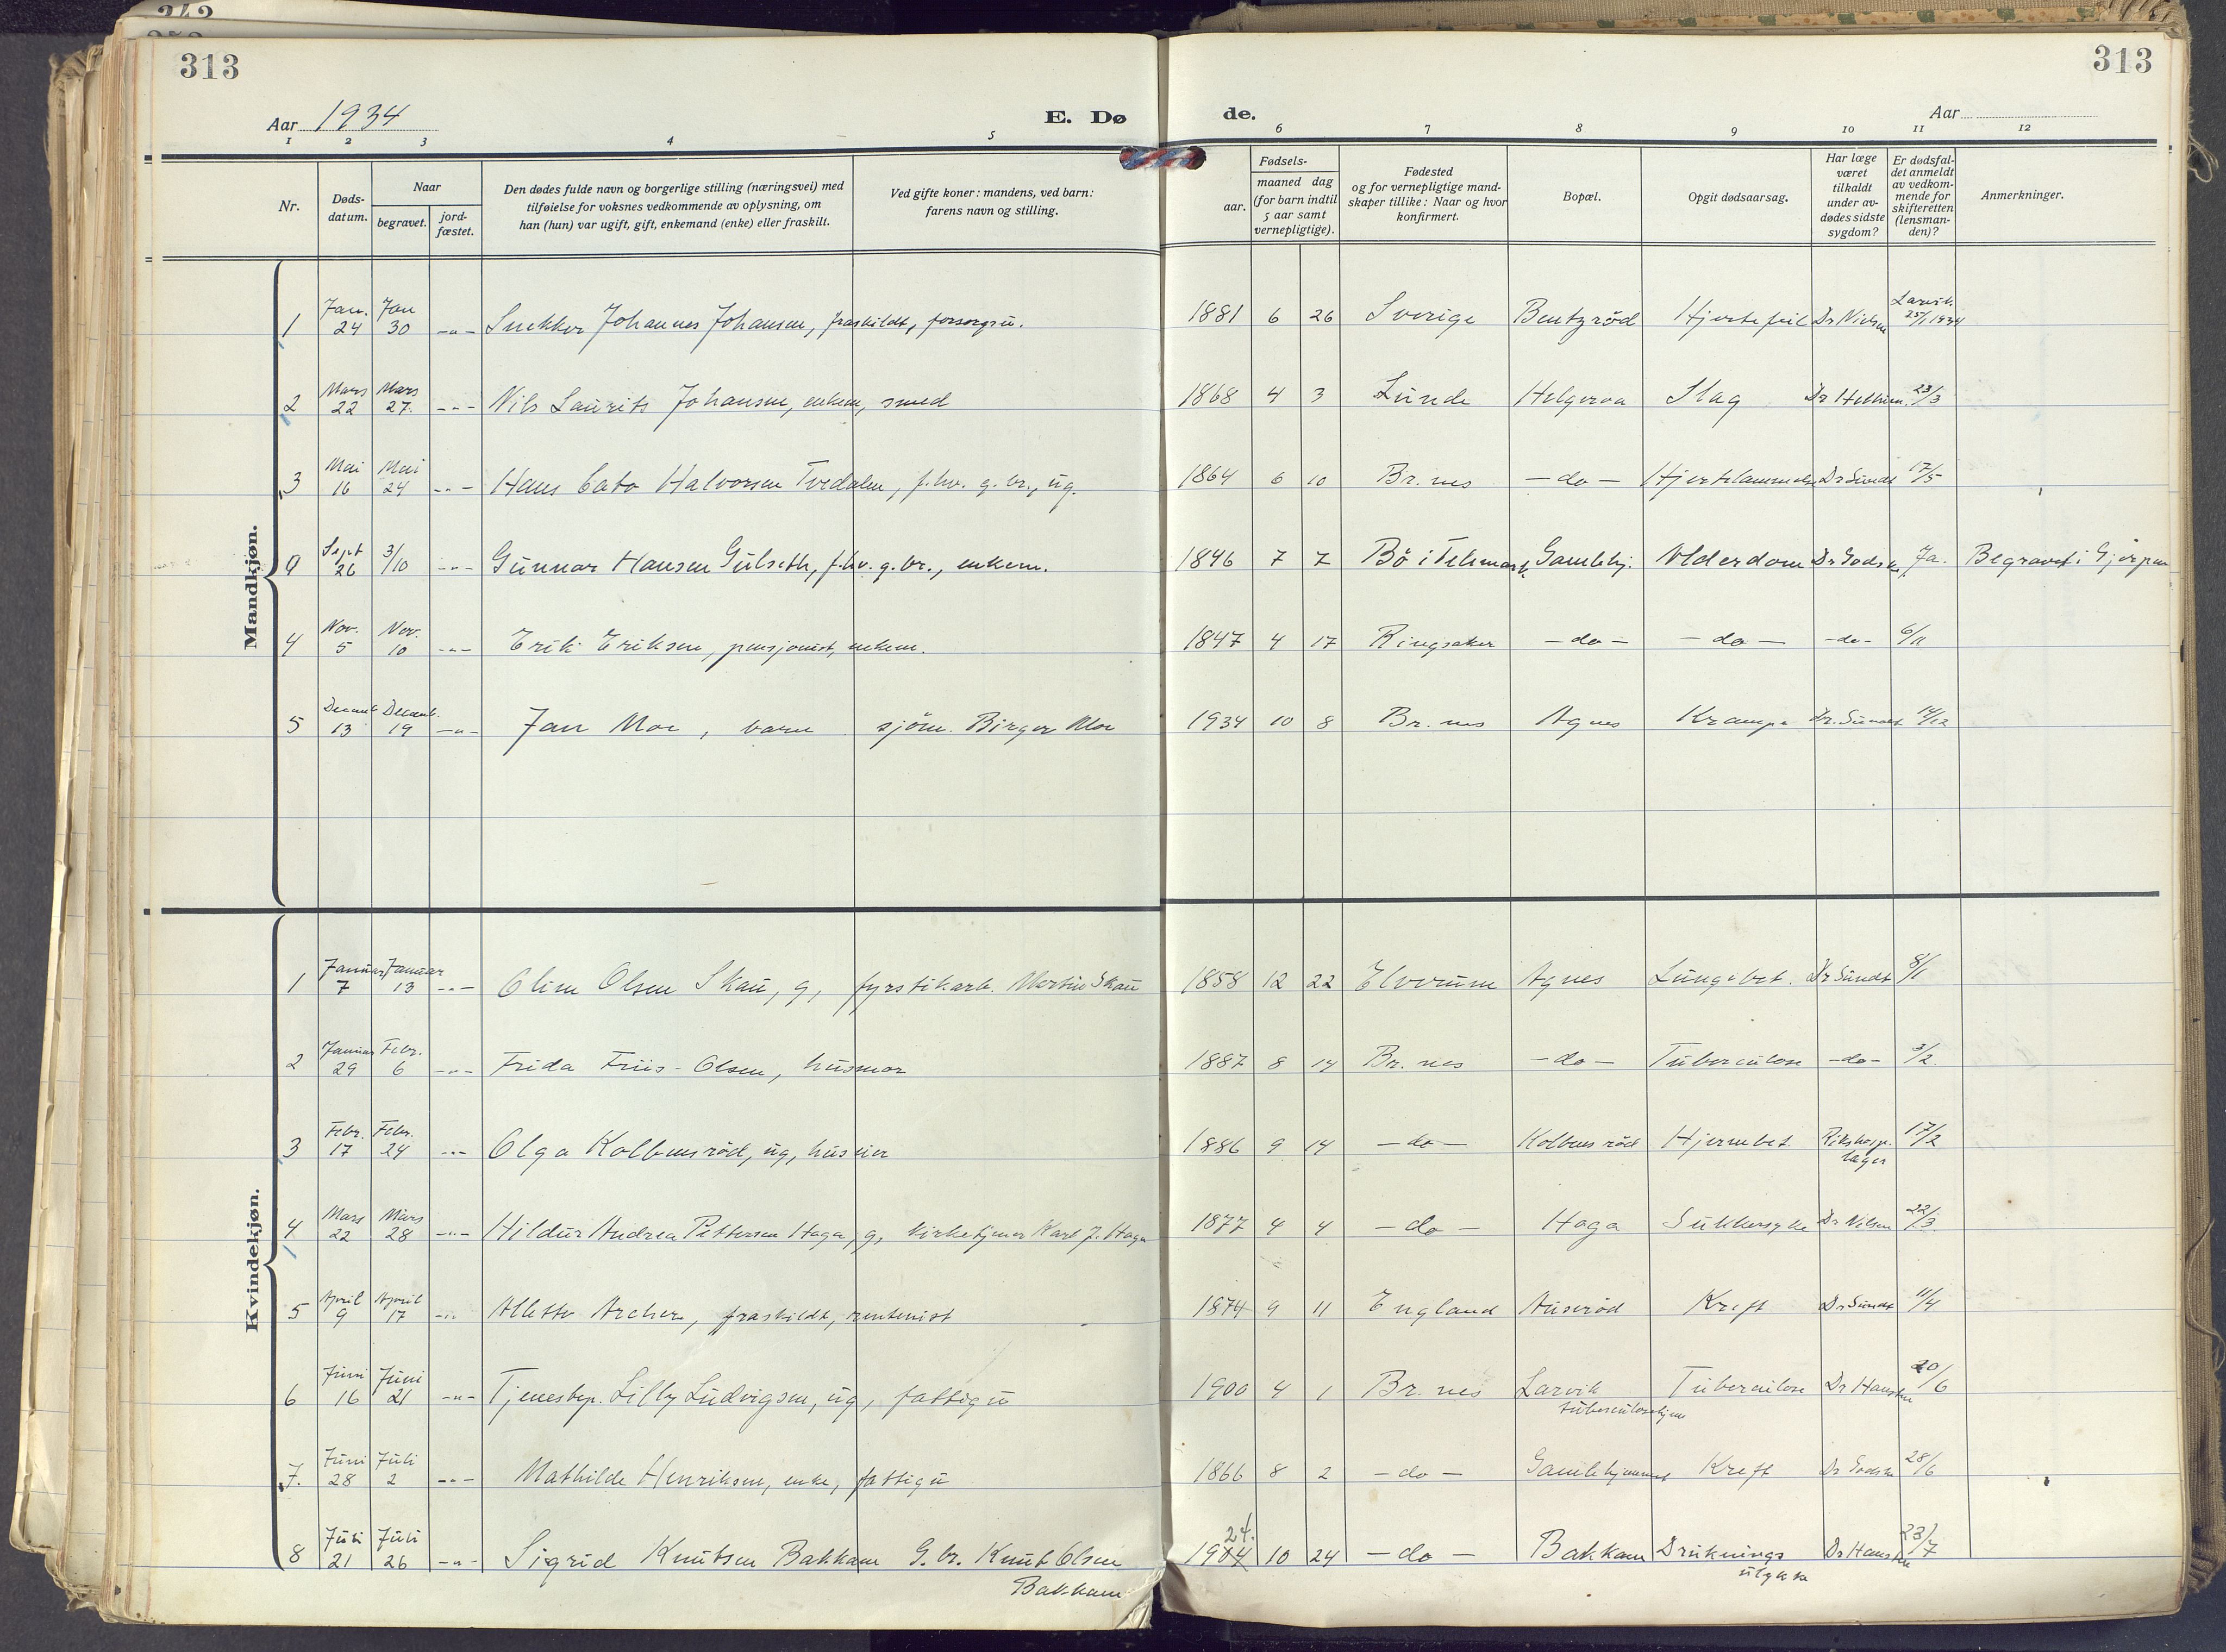 313
313
Aar 1934
E. Dø
de.
Aar
1 2 3 4 5 6 7 8 9 10 11 12
Nr.
Døds-
datum.
Naar
begravet.
jord-
fæstet.
Den dødes fulde navn og borgerlige stilling (næringsvei) med
tilføielse for voksnes vedkommende av oplysning, om
han (hun) var ugift, gift, enkemand (enke) eller fraskilt.
Ved gifte koner: mandens, ved barn:
farens navn og stilling.
Fødsels-
aar.
maaned dag
(for barn indtil
5 aar samt
vernepligtige).
Fødested
og for vernepligtige mand-
skaper tillike: Naar og hvor
konfirmert.
Bopæl.
Opgit dødsaarsag.
Har læge
været
tilkaldt
under av-
dødes sidste
sygdom?
Er dødsfal-
det anmeldt
av vedkom-
mende for
skifteretten
(lensman-
den)?
Anmerkninger.
Mandkjøn.
1 Jan. 24 Jan 30 -"- Snekker Johannes Johansen, fraskildt, forsørgsu. 1881 6 26 Sverige Bentzrød Hjertefeil Dr Nielsen Larvik 25/1 1934
2 Mars 22 Mars 27. -"- Nils Laurits Johansen, enkem, smed 1868 4 3 Lunde Helgeroa Slag 23/3
3 Mai 16 Mai 24 -"- Hans Cato Halvorsen Tvedalen, f.hv. g.br., ug. 1864 6 10 Br.nes -do- Hjertelammelse Dr Sundt 17/5
Sept 26 3/10 -"- Gunnar Hansen Gulseth, f.hv. g.br., enkem. 1846 7 7 Bö i Telemark. Gamlehj. Alderdom Ja. Begravet i Gjerpen
4 Nov. 5 Nov. 10 -"- Erik Eriksen, pensjonist, enkem. 1847 4 17 Ringsaker -do- -do- -do- 6/11
5 Decemb 13 Decemb. 19 -"- Jan Moe, barn sjöm. Birger Moe 1934 10 8 Br.nes Agnes Krampe Dr. Sundt 14/12
Kvindekjøn.
1 Januar 7 Januar 13 -"- Oline Olsen Skau, g, fyrstikarb. Martin Skau 1858 12 22 Elverum Agnes Lungebet. Dr Sundt 8/1
2 Januar 29 Febr. 6 -"- Frida Friis-Olsen, husmor 1887 8 14 Br.nes -do- Tuberculose -do- 3/2.
3 Febr. 17 Febr. 24 -"- Olga Kolbensröd, ug, huseier 1886 9 14 -do- Kolbensröd Hjernebet. Rikshosp. læger 17/2
4 Mars 22 Mars 28 -"- Hildur Andrea Pettersen Haga, g, kirketjener Karl J. Haga 1877 4 4 -do- Haga Sukkersyke Dr Nielsen 22/3.
5 April 9 April 17 -"- Alette Archer, fraskildt, rentenist 1874 9 11 England Auseröd Kreft Dr Sundt 11/4
6 Juni 16 Juni 21 -"- Tjenestep. Lilly Ludvigsen, ug, fattigu 1900 4 1 Br.nes Larvik tuberculosehjem Tuberculose Dr Hansten 20/6
7. Juni 28 Juli 2 -"- Mathilde Henriksen, enke, fattigu 1866 8 2 -do- Gamlehjemmet Kreft 28/6
8 Juli 21 Juli 26 -"- Sigrid Knutsen Bakkane G.br. Knut Olsen Bakkane 24. 1904 10 24 -do- Bakkane Druknings ulykke Dr Hansten 23/7